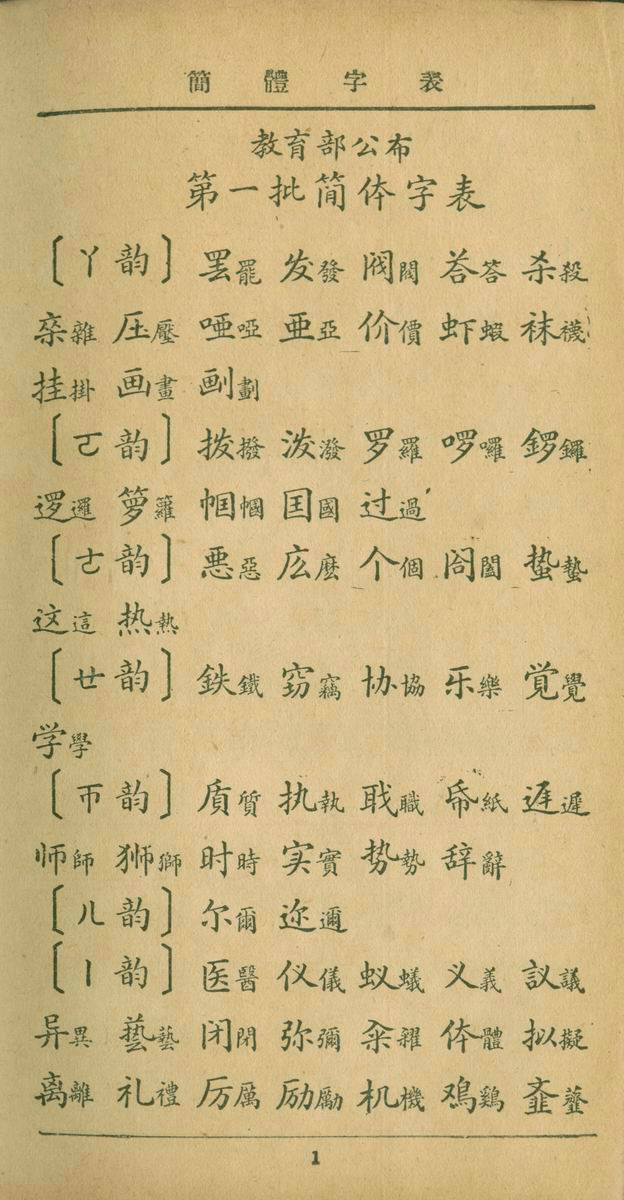 簡體字表
教育部公布
第一批简体字表
〔ㄚ韵〕 罢罷 发發 阀閥 荅答 杀殺
杂雜 压壓 哑啞 亜亞 价價 虾蝦 袜襪
挂掛 画畫 劃
〔ㄛ韵〕 拨撥 泼潑 罗羅 啰囉 鑼
逻邏 箩籮 帼幗 囯國 过過
〔ㄜ韵〕 悪惡 庅麼 个個 阁閣 蛰蟄
这這 热熱
〔ㄝ韵〕 鉄鐵 窃竊 协協 乐樂 覚覺
学學
〔ㄭ韵〕 质質 执執 职職 帋紙 迟遲
师師 狮獅 时時 实實 势勢 辞辭
〔ㄦ韵〕 尔爾 迩邇
〔ㄧ韵〕 医醫 仪儀 蚁蟻 义義 議
异異 藝 闭閉 弥彌 籴糴 体體 拟擬
离離 礼禮 厉厲 励勵 机機 鸡鷄 齑虀
1